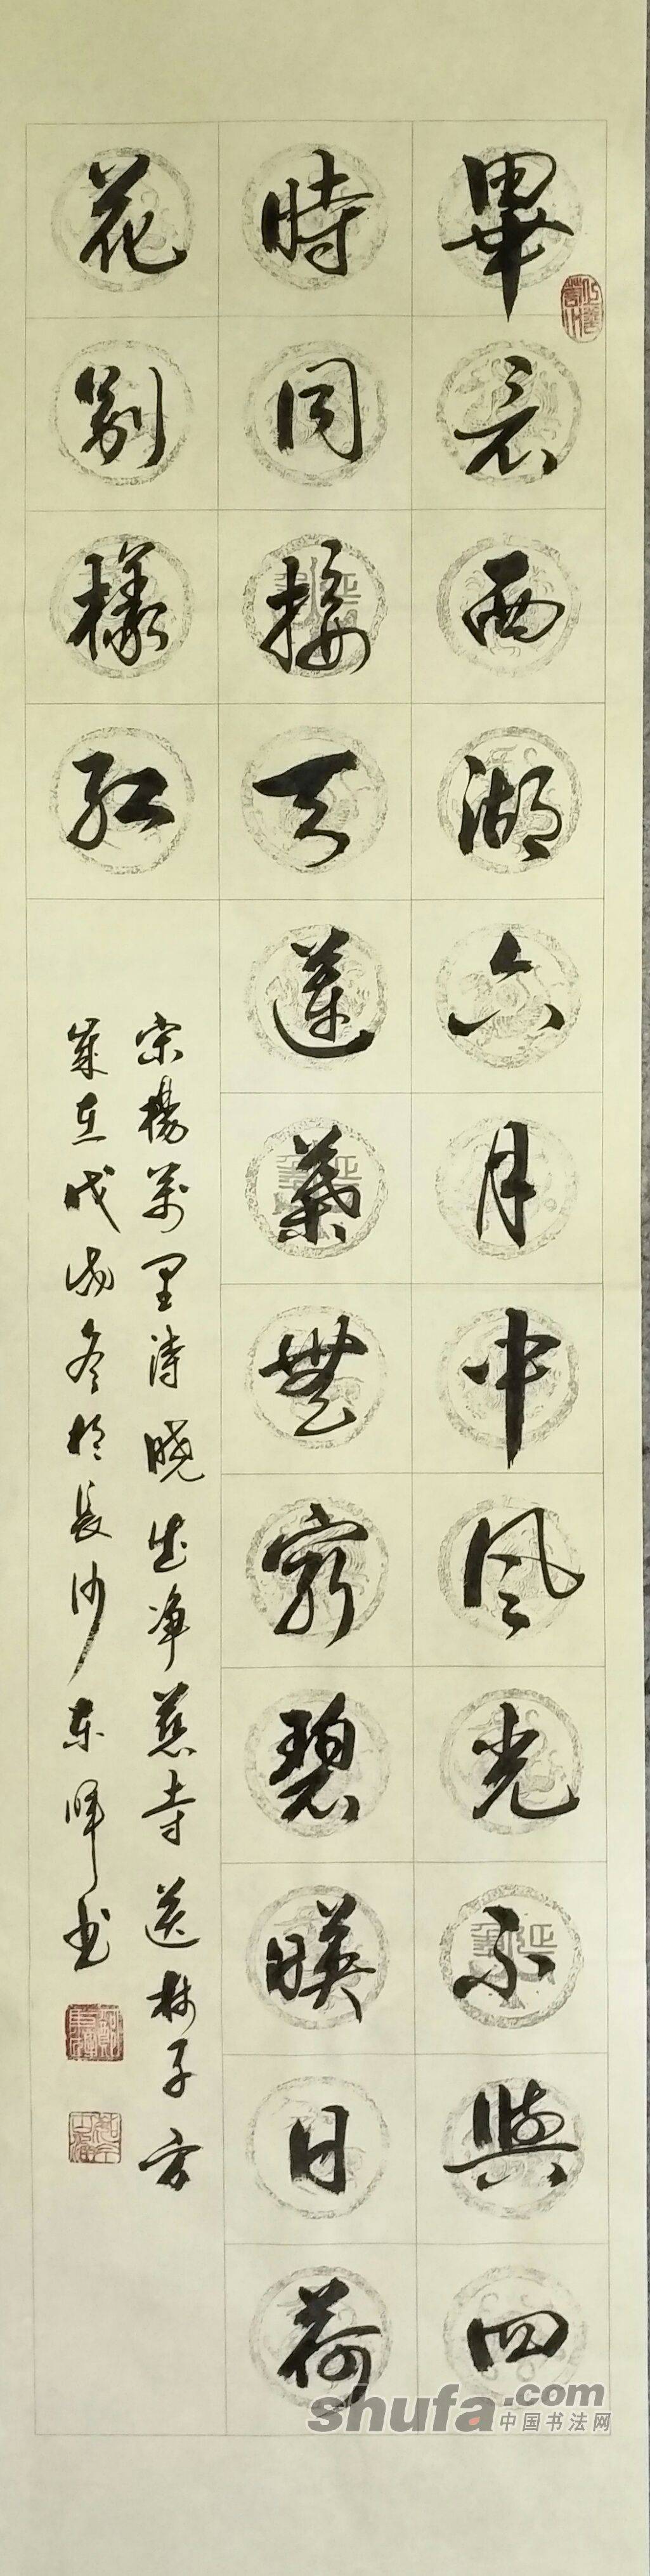 畢竟西湖六月中風光不與四
時同接天蓮葉無窮碧映日荷
花別樣紅
宋楊萬里詩曉出净慈寺送林子方
歲在戊戌冬於長沙東暉书
shufa.com
中国书法网